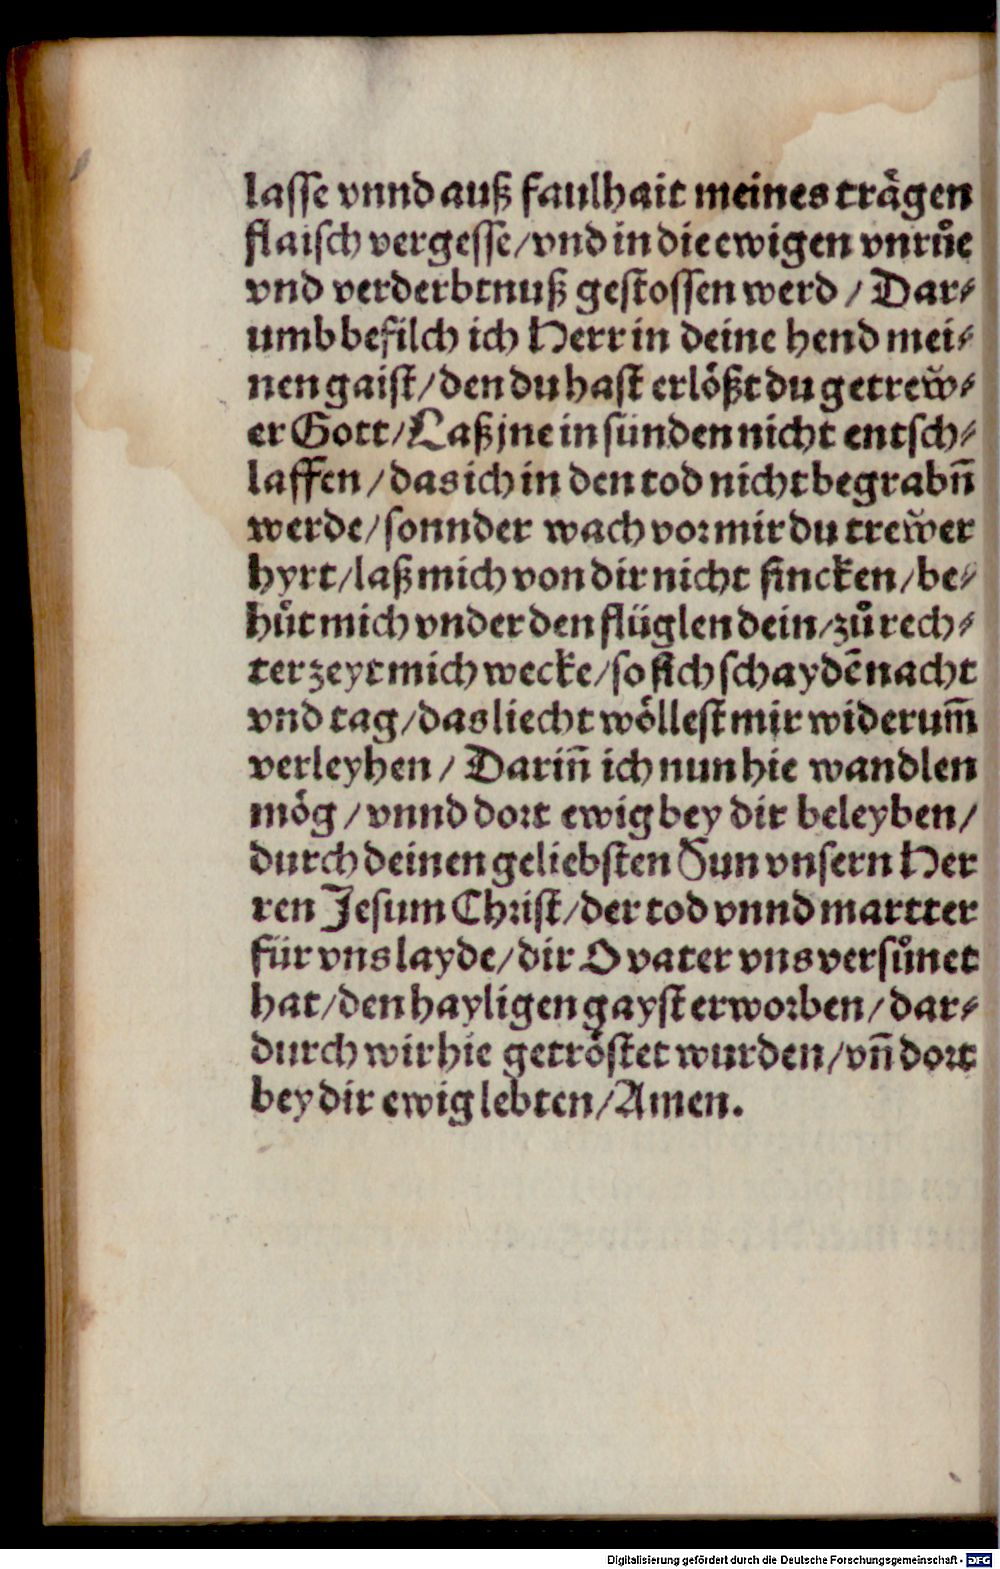 lasse vnnd auß faulhait meines trägen
flaisch vergesse/vnd in die ewigen vnrůe
vnd verderbtnuß gestossen werd / Dar⸗
umb befilch ich Herr in deine hend mei⸗
nen gaist/den du hast erlößt du getrew̃⸗
er Gott/Laß jne in sünden nicht entsch⸗
laffen /das ich in den tod nicht begrabn̄
werde/sonnder wach vor mir du trew̃er
hyrt/laß mich von dir nicht sincken/be⸗
hůt mich vnder den flüglen dein/zů rech⸗
ter zeyt mich wecke/so sich schaydē nacht
vnd tag/das liecht wöllest mir widerum̄
verleyhen / Darin̄ ich nun hie wandlen
mög /vnnd dort ewig bey dir beleyben/
durch deinen geliebsten Sun vnsern Her
ren Jesum Christ/der tod vnnd martter
für vns layde/dir O vater vns versůnet
hat/den hayligen gayst erworben/dar⸗
durch wir hie getröstet wurden/vn̄ dort
bey dir ewig lebten/Amen.
Digitalisierung gefördert durch die Deutsche Forschungsgemeinschaft - DFG